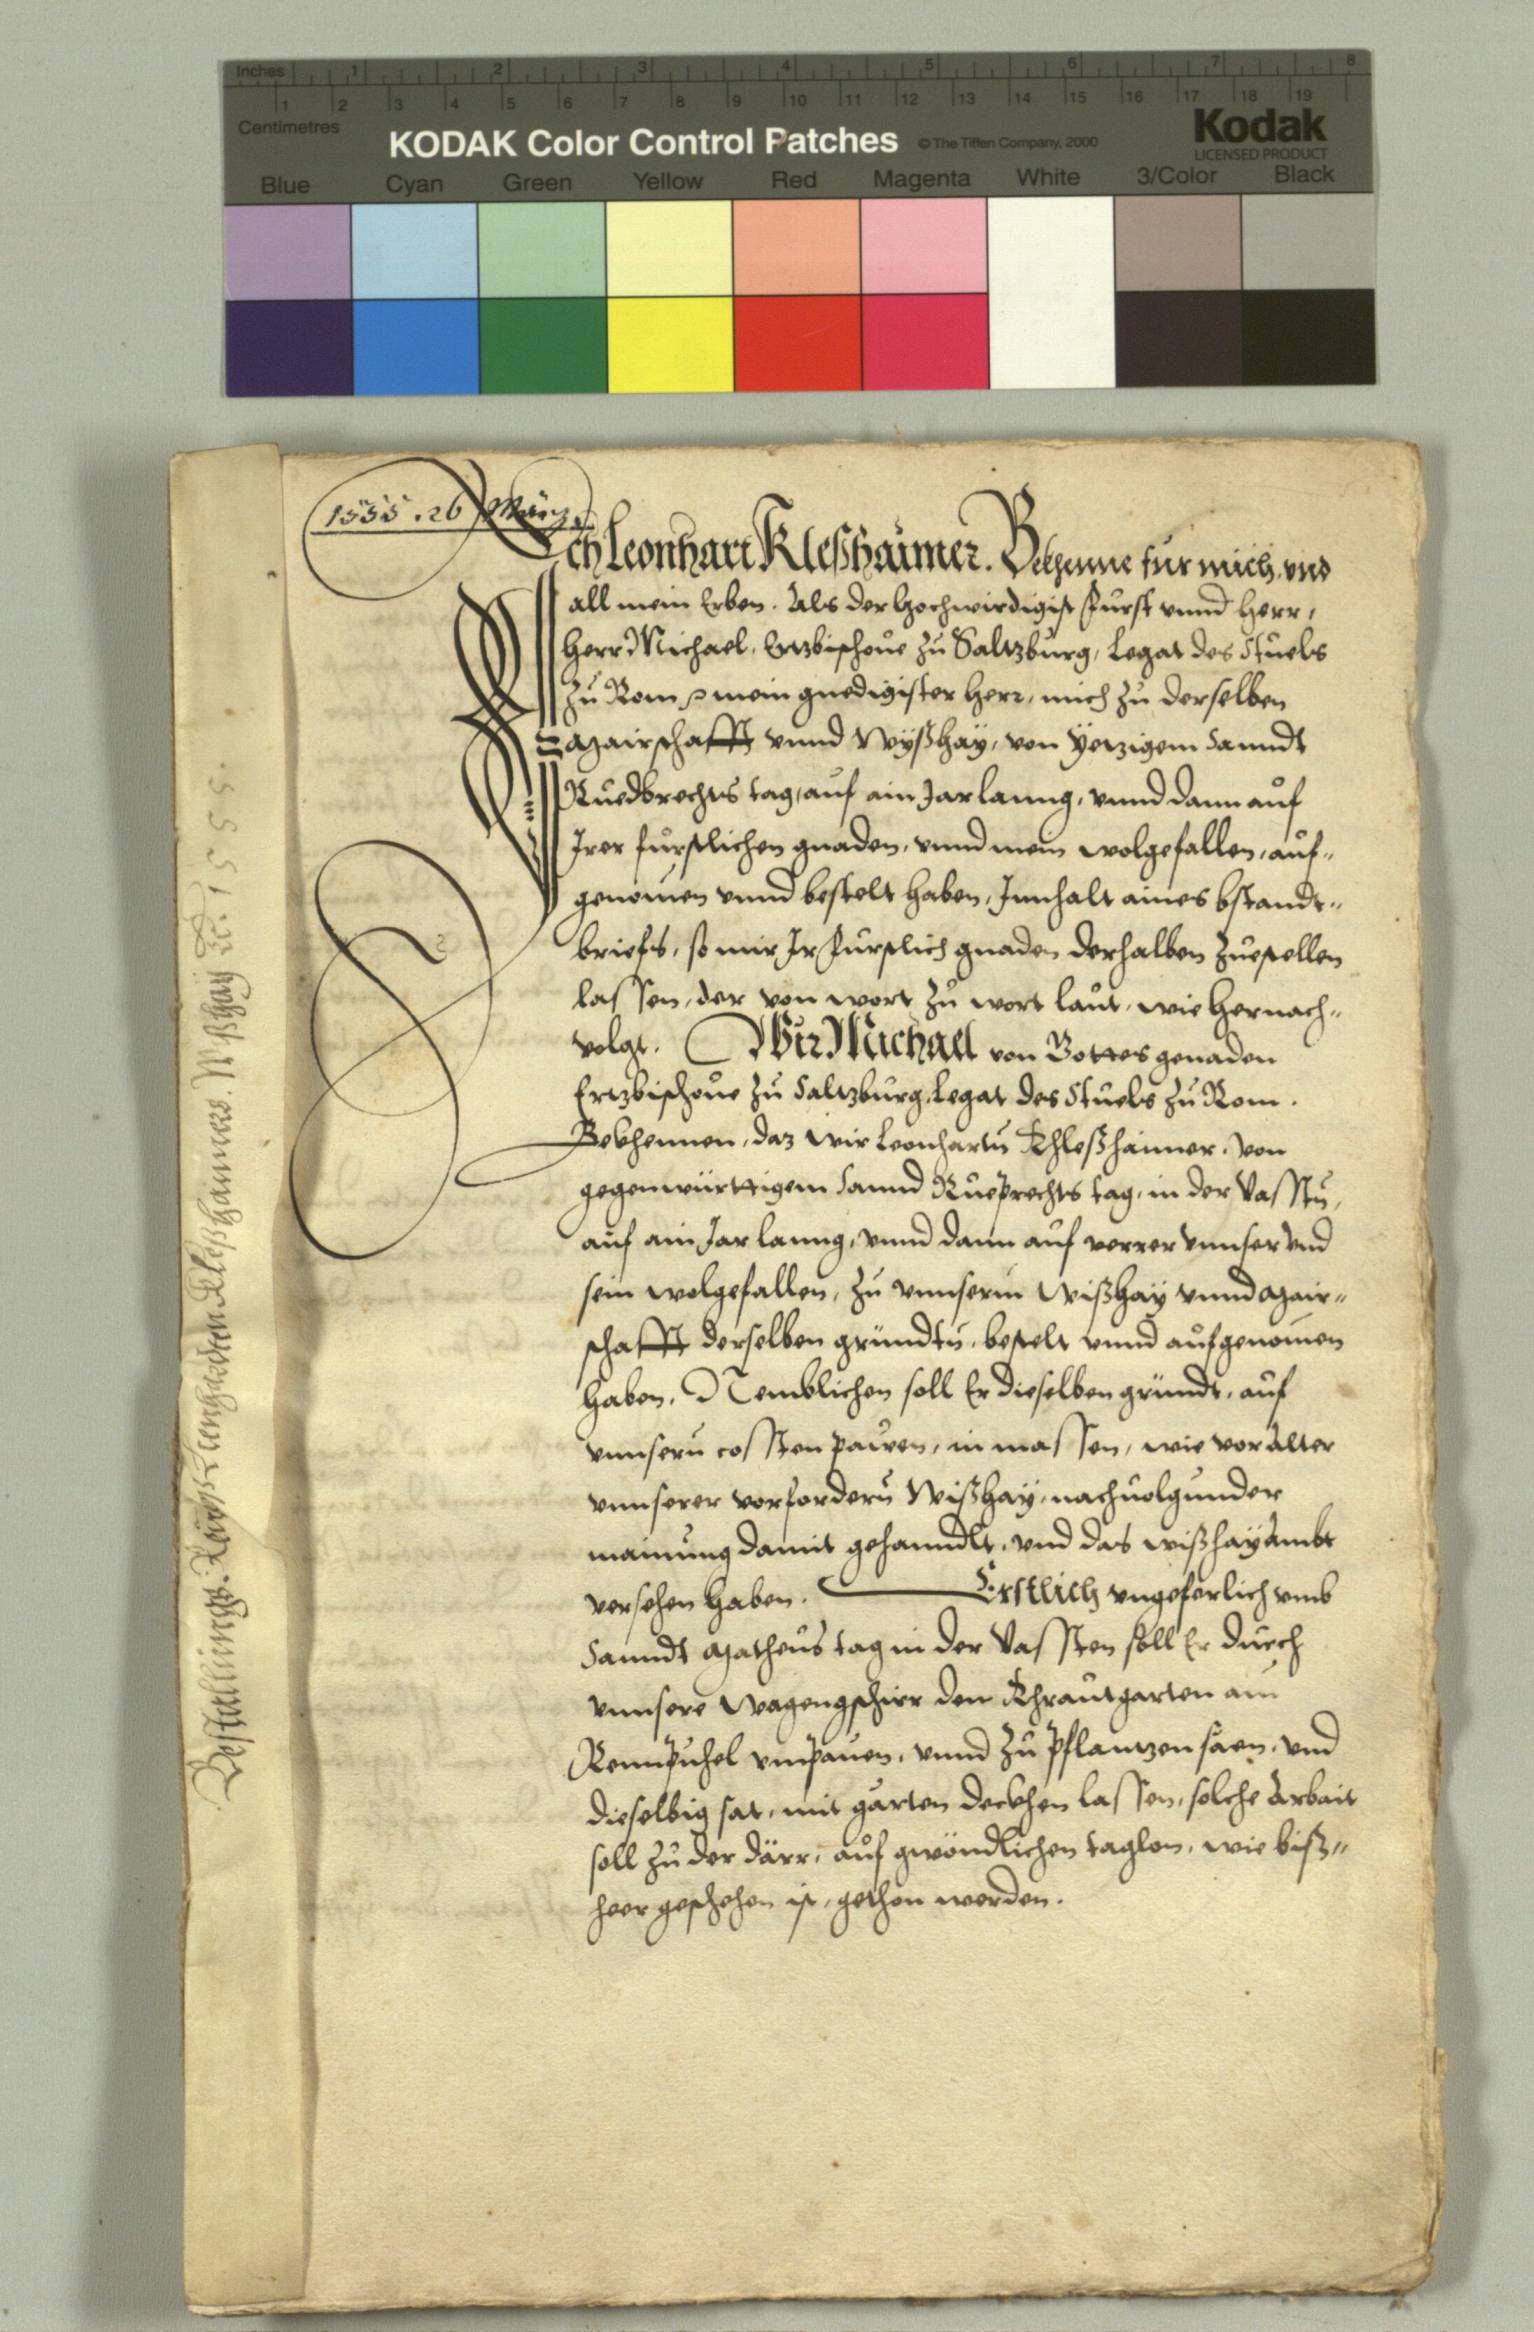 Inches 1 2 3 4 5 6 7 8
1 2 3 4 5 6 7 8 9 10 11 12 13 14 15 16 17 18 19
Centimetres
KODAK Color Control Patches © The Tiffen Company, 2000 Kodak
LICENSED PRODUCT
Blue Cyan Green Yellow Red Magenta White 3/Color Black
1555 . 26 März.
Ich Leonhart Kleßhaimer. Bekhenne fur mich, vnd
all mein Erben. Als der Hochwirdigist Furst vnnd Herr,
Herr Michael, Ertzbischoue zu Saltzburg, Legat des Stuels
zu Rom mein gnedigister Herr, mich zu derselben
Mairschafft vnnd Wyßhay, von Yetzigem Sanndt
Ruedbrechts tag, auf ain Jarlanng, vnnd dann auf
Irer furstlichen gnaden, vnnd mein wolgefallen, auf-
genomen vnnd bestelt haben, Innhalt aines bstandt-
briefs, so mir Ir Furstlich gnaden derhalben zuestellen
lassen, der von wort zu wort laut, wie hernach-
volgt. Wir Michael von Gottes genaden
Ertzbischoue zu Saltzburg, Legat des Stuels zu Rom.
Bekhennen, daz wir Leonhartn Khleßhaimer, von
gegenwürttigem Sannd Rueprechts tag, in der Vasstn,
auf ain Jar lanng, vnnd dann auf verrer vnnser vnd
sein wolgefallen, zu vnnserm Wißhay vnnd Mair-
schafft derselben gründtn, bestelt vnnd aufgenomen
haben, Nemblichen soll Er dieselben gründt, auf
vnnsern cossten pawen, in massen, wie vor alter
vnnserer vorfordern Wißhay, nachuolgunder
mainung damit gehanndlt, vnd das wißhayambt
versehen haben. Erstlich vngeferlich vmb
Sanndt Matheus tag in der Vassten soll Er durch
vnnsere Wagengschirr den Khrautgarten am
Rennpuhel vmpauen, vnnd zu pflantzen säen, vnd
dieselbig sat, mit garten deckhen lassen, solche Arbait
soll zu der därr, auf gwöndlichen taglon, wie biß-
heer geschehen ist, gethon werden.
Bestallungs Reuers Leonharden Kleßhaimers. Wißhay etc. 1555.